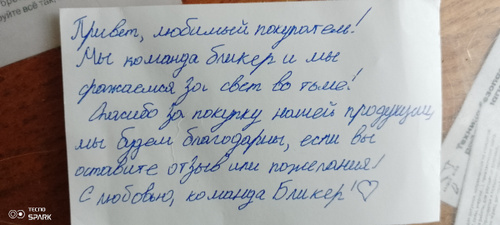 Привет, любимый покупатель!
Мы команда бликер и мы
сражаемся за свет во тьме!
Спасибо за покупку нашей продукции,
мы будем благодарны, если вы
оставите отзыв или пожелания!
С любовью, команда Бликер!♡
TECNO
SPARK